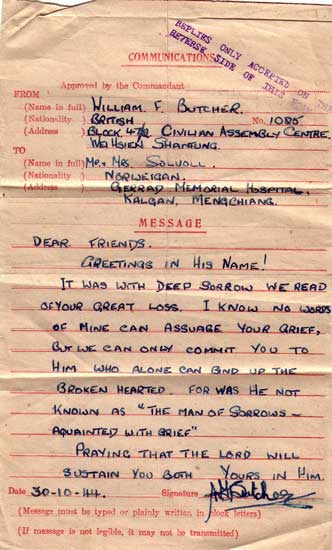 REPLIES ONLY ACCEPTED ON THE
REVERSE SIDE OF THIS FORM
COMMUNICATIONS
Approved by the Commandant
FROM
(Name in full) WILLIAM F. BUTCHER.
(Nationality) BRITISH No. 1085
(Address) BLOCK 47/2 CIVILIAN ASSEMBLY CENTRE.
WEIHSIEN SHANTUNG.
TO
(Name in full) MR. & MRS. SOLVOLL.
(Nationality) NORWEIGAN.
(Address) GERRAD MEMORIAL HOSPITAL,
KALGAN, MENGCHIANG.
MESSAGE
DEAR FRIENDS.
GREETINGS IN HIS NAME!
IT WAS WITH DEEP SORROW WE READ
OF YOUR GREAT LOSS. I KNOW NO WORDS
OF MINE CAN ASSUAGE YOUR GRIEF,
BUT WE CAN ONLY COMMIT YOU TO
HIM WHO ALONE CAN BIND UP THE
BROKEN HEARTED. FOR WAS HE NOT
KNOWN AS "THE MAN OF SORROWS –
AQUAINTED WITH GRIEF"
PRAYING THAT THE LORD WILL
SUSTAIN YOU BOTH YOURS IN HIM.
Date 30-10-44. Signature Butcher
(Message must be typed or plainly written in block letters)
(If message is not legible, it may not be transmitted)